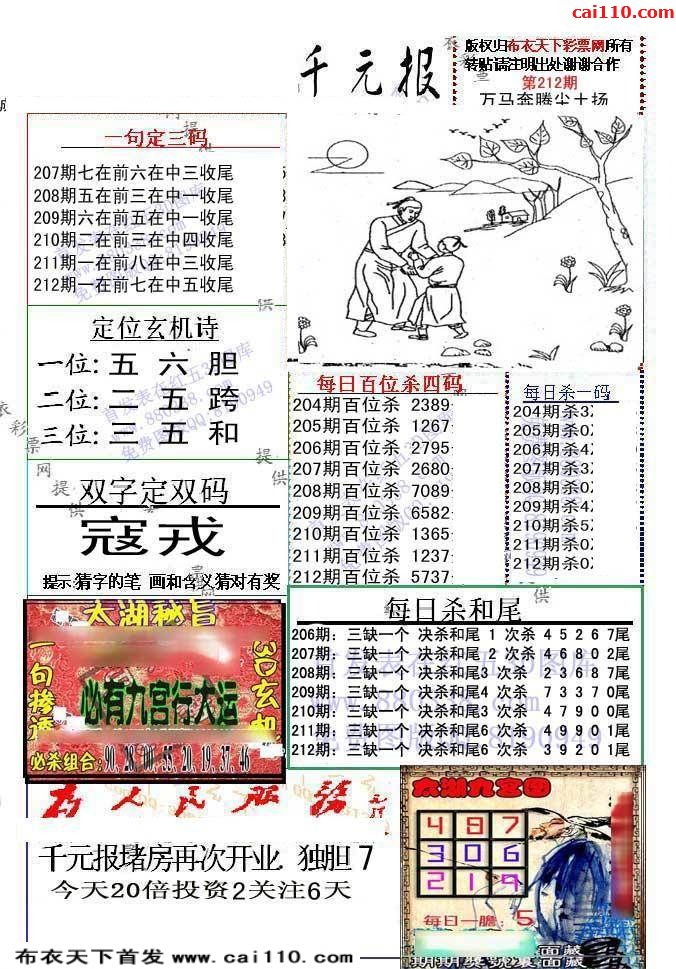 cai110.com
千元报
版权归布衣天下彩票网所有
转贴请注明出处谢谢合作
第212期
万马奔腾尘土扬
一句定三码
207期七在前六在中三收尾
208期五在前三在中一收尾
209期六在前五在中一收尾
210期二在前三在中四收尾
211期一在前八在中三收尾
212期一在前七在中五收尾
定位玄机诗
一位: 五 六 胆
二位: 二 五 跨
三位: 三 五 和
双字定双码
寇戎
提示:猜字的笔 画和含义猜对有奖
每日百位杀四码
204期百位杀 2389
205期百位杀 1267
206期百位杀 2795
207期百位杀 2680
208期百位杀 7089
209期百位杀 6582
210期百位杀 1365
211期百位杀 1237
212期百位杀 5737
每日杀一码
204期杀3
205期杀0
206期杀4
207期杀3
208期杀0
209期杀4
210期杀5
211期杀0
212期杀0
每日杀和尾
206期: 三缺一个 决杀和尾 1 次杀 4 5 2 6 7尾
207期: 三缺一个 决杀和尾 2 次杀 4 6 8 0 2尾
208期: 三缺一个 决杀和尾3 次杀 7 3 6 8 7尾
209期: 三缺一个 决杀和尾4 次杀 7 3 3 7 0尾
210期: 三缺一个 决杀和尾3 次杀 4 7 9 0 0尾
211期: 三缺一个 决杀和尾6 次杀 4 9 9 0 1尾
212期: 三缺一个 决杀和尾6 次杀 3 9 2 0 1尾
太湖秘旨
一句掺透
3D玄机
必有九宫行大运
必杀组合: 90, 28, 00, 55, 20, 19, 37, 46
为人民服务
千元报堵房再次开业 独胆 7
今天20倍投资2关注6天
太湖九宫图
4 8 7
3 0 6
2 1 9
每日一膽: 5
布衣天下首发 www.cai110.com